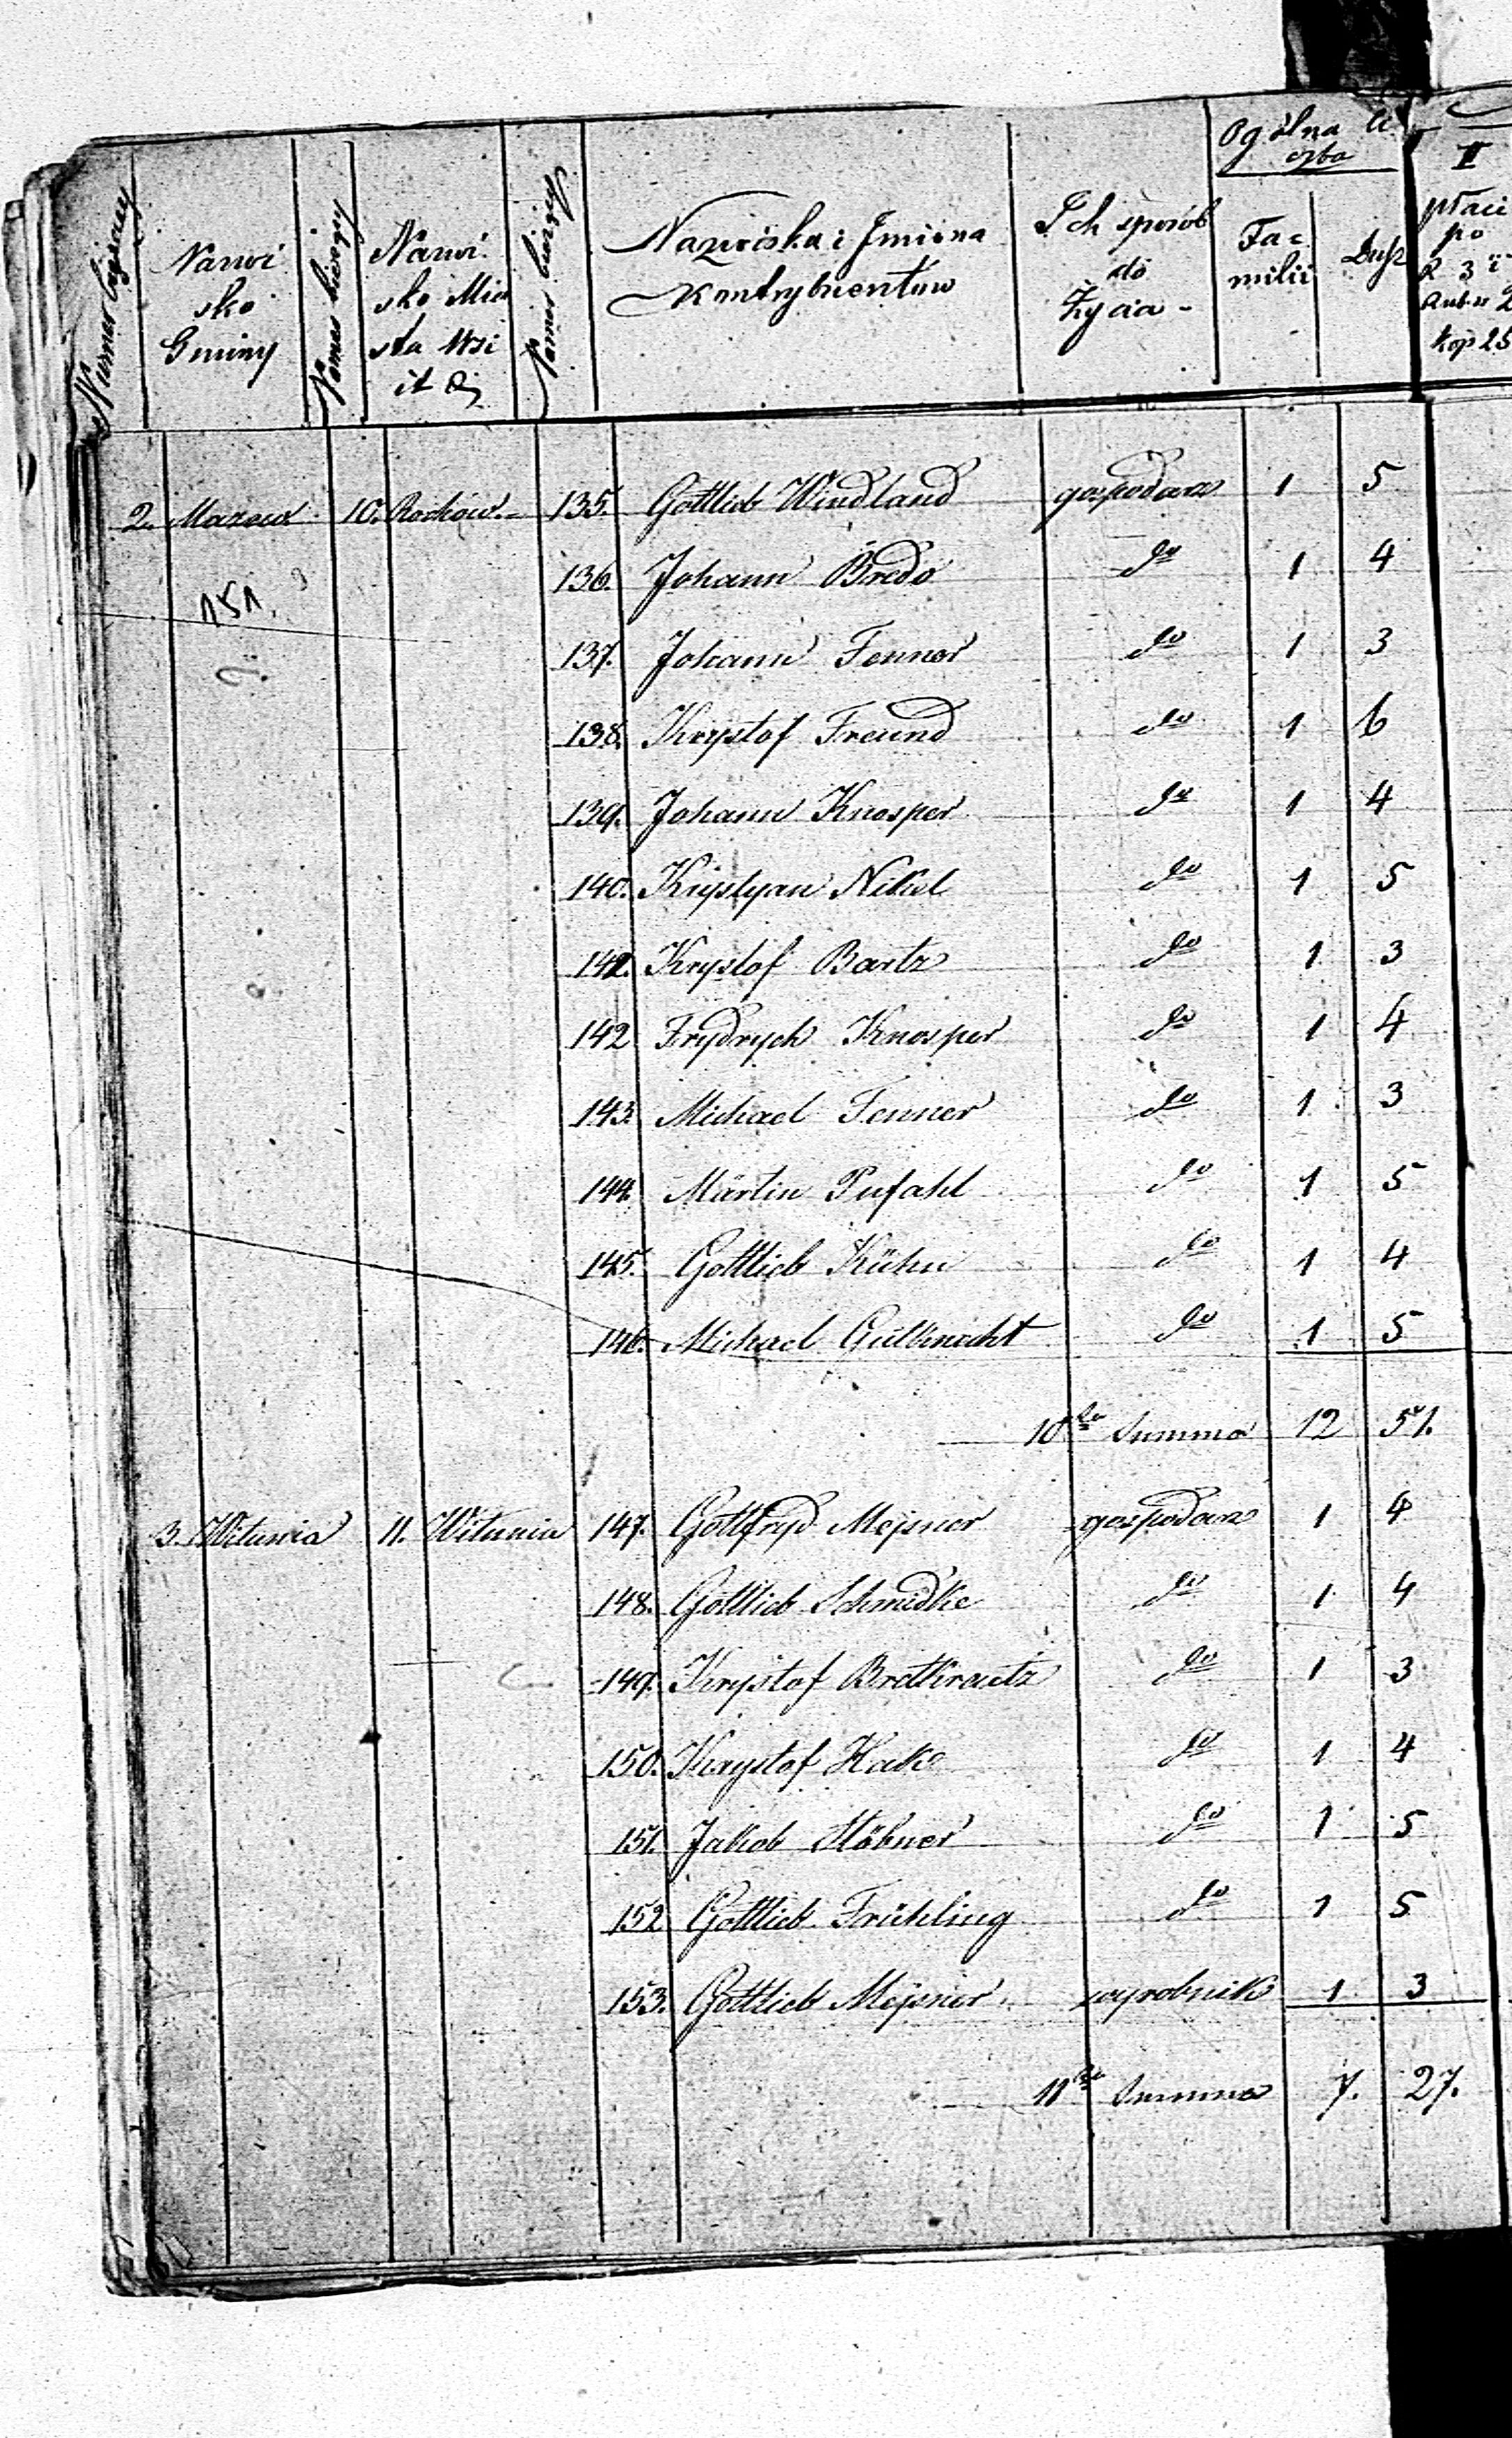 Numer bieżący
Nazwi
sko
Gminy
Numer bieżący
Nazwi
sko Mia
sta Wsi
it d
Numer bieżący
Nazwiska i Jmiona
Kontrybuentów
Ich sposób
do
Życia -
Ogólna li
czba
Fa=
milii
Dusz
II
płaci
po
R 3 i
Kop 25
2. Mazew 10. Rochów - 135. Gottlieb Windland gospodarz 1 5
136. Johann Bredo do 1 4
151.
137. Johann Fenner do 1 3
138. Krystof Freund do 1 6
139. Johann Knosper do 1 4
140. Krystyan Nikel do 1 5
142. Krystof Bartz do 1 3
142 Frydrych Knosper do 1 4
143. Michael Fenner do 1 3
144. Martin Pufahl do 1 5
145. Gottlieb Kühn do 1 4
146. Michael Gutknecht do 1 5
10ta Summa 12 51.
3. Witunia 11. Witunia 147. Gottfryd Mejsner gospodarz 1 4
148. Gottlieb Schmidke do 1 4
149. Krystof Bretkreutz do 1 3
150. Krystof Hake do 1 4
151. Jakob Hübner do 1 5
152 Gottlieb Frühling do 1 5
153. Gottlieb Mejsner wyrobnik 1 3
11ta Summa 7. 27.